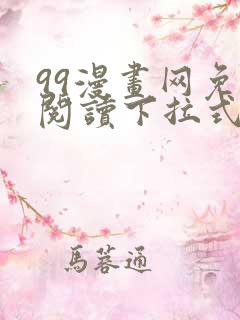 99漫畫网免
閱讀下拉式
馬蓉通